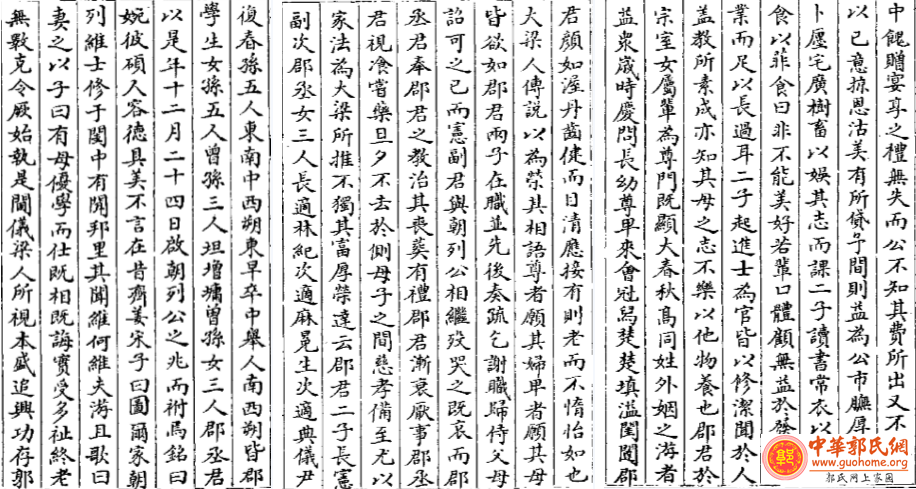 中饋贈宴享之禮無失而公不知其費所出又不
以己意掠恩沽美有所貸予間則益為公市膴厚
卜廛宅廣樹畜以娛其志而課二子讀書常衣以
食以菲食曰非不能美好若輩口體顧無益於
業而足以長過耳二子起進士為官皆以修潔聞於人
蓋教所素成亦知其母之志不樂以他物養也郡君於
宗室女屬輩為尊門既顯大春秋髙同姓外姻之海者
益衆歲時慶問長幼尊卑來會冠舄楚楚填溢閨闥郡
君顏如渥丹齒健而目清應接有則老而不惰怡如也
大梁人傳說以為榮其相語尊者願其婦卑者願其母
皆欲如郡君兩子在職並先後奏疏乞謝職歸侍父母
詔可之已而憲副君與朝列公相繼歿哭之既哀而郡
丞君奉郡君之教治其喪葬有禮郡君漸衰厭事郡丞
君視飡嘗藥旦夕不去於側母子之間慈孝備至尤以
家法為大梁所推不獨其富厚榮達云郡君二子長憲
副次郡丞女三人長適林紀次適麻冕生次適典儀尹
復春孫五人東南中西朔東早卒中舉人南西朔皆郡
學生女孫五人曾孫三人坦增墉曾孫女三人郡丞君
以是年十二月二十四日啟朝列公之兆而祔焉銘曰
婉彼碩人容德具美不言在昔齊姜宋子曰圖爾家朝
列維士修于閨中有聞邦里其聞維何維夫海且歌曰
妻之以子曰有母優學而仕既相既誨實受多祉終老
無斁克令厥始執是閫儀梁人所視本盛追興功存郭
中華郭氏網
www.guohome.org
郭氏网上家園